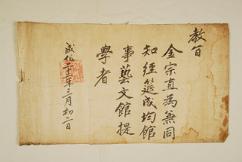 教旨
金宗直為兼同
知經筵成均館
事藝文館提
學者
成化二十年三月初二日